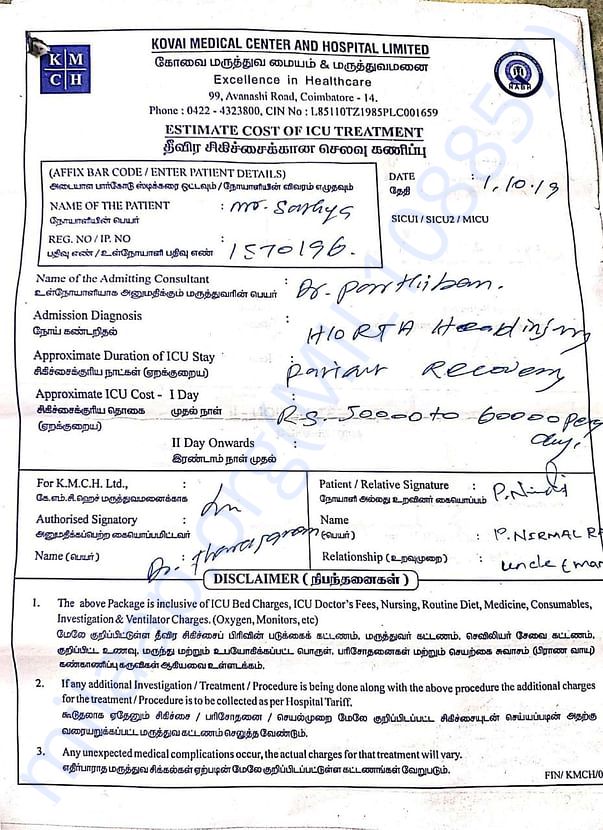 K M
C H
NABH
KOVAI MEDICAL CENTER AND HOSPITAL LIMITED
கோவை மருத்துவ மையம் & மருத்துவமனை
Excellence in Healthcare
99, Avanashi Road, Coimbatore - 14.
Phone : 0422 - 4323800, CIN No : L85110TZ1985PLC001659
ESTIMATE COST OF ICU TREATMENT
தீவிர சிகிச்சைக்கான செலவு கணிப்பு
(AFFIX BAR CODE / ENTER PATIENT DETAILS)
அடையாள பார்கோடு ஸ்டிக்கரை ஒட்டவும் / நோயாளியின் விவரம் எழுதவும்
NAME OF THE PATIENT : Mr. Sathya
நோயாளியின் பெயர்
REG. NO / IP. NO : 1570196.
பதிவு எண் / உள்நோயாளி பதிவு எண்
DATE : 1.10.19
தேதி
SICU1 / SICU2 / MICU
Name of the Admitting Consultant : Dr. Parthiban.
உள்நோயாளியாக அனுமதிக்கும் மருத்துவரின் பெயர்
Admission Diagnosis : H/O RTA Head injury
நோய் கண்டறிதல்
Approximate Duration of ICU Stay : Recovery
சிகிச்சைக்குரிய நாட்கள் (ஏறக்குறைய)
Approximate ICU Cost - I Day : Rs. 50000 to 60000 per day.
சிகிச்சைக்குரிய தொகை முதல் நாள்
(ஏறக்குறைய)
II Day Onwards :
இரண்டாம் நாள் முதல்
For K.M.C.H. Ltd., :
கே.எம்.சி.ஹெச் மருத்துவமனைக்காக
Authorised Signatory :
அனுமதிக்கப்பெற்ற கையொப்பமிட்டவர்
Name (பெயர்) : Dr.
Patient / Relative Signature :
நோயாளி அல்லது உறவினர் கையொப்பம்
Name
(பெயர்) : P. NIRMAL
Relationship (உறவுமுறை) : uncle
DISCLAIMER (நிபந்தனைகள்)
1. The above Package is inclusive of ICU Bed Charges, ICU Doctor's Fees, Nursing, Routine Diet, Medicine, Consumables,
Investigation & Ventilator Charges. (Oxygen, Monitors, etc)
மேலே குறிப்பிட்டுள்ள தீவிர சிகிச்சைப் பிரிவின் படுக்கைக் கட்டணம், மருத்துவர் கட்டணம், செவிலியர் சேவை கட்டணம்,
குறிப்பிட்ட உணவு, மருந்து மற்றும் உபயோகிக்கப்பட்ட பொருள், பரிசோதனைகள் மற்றும் செயற்கை சுவாசம் (பிராண வாயு)
கண்காணிப்பு கருவிகள் ஆகியவை உள்ளடக்கம்.
2. If any additional Investigation / Treatment / Procedure is being done along with the above procedure the additional charges
for the treatment / Procedure is to be collected as per Hospital Tariff.
கூடுதலாக ஏதேனும் சிகிச்சை / பரிசோதனை / செயல்முறை மேலே குறிப்பிடப்பட்ட சிகிச்சையுடன் செய்யப்படின் அதற்கு
வரையறுக்கப்பட்ட மருத்துவ கட்டணம் செலுத்த வேண்டும்.
3. Any unexpected medical complications occur, the actual charges for that treatment will vary.
எதிர்பாராத மருத்துவ சிக்கல்கள் ஏற்படின் மேலே குறிப்பிடப்பட்டுள்ள கட்டணங்கள் வேறுபடும்.
FIN/ KMCH/0